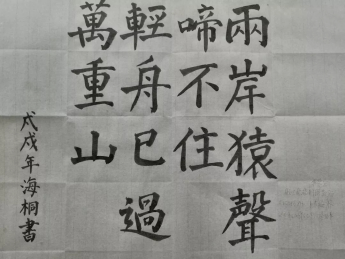 兩岸猿聲
啼不住
輕舟已過
萬重山
戊戌年海桐書